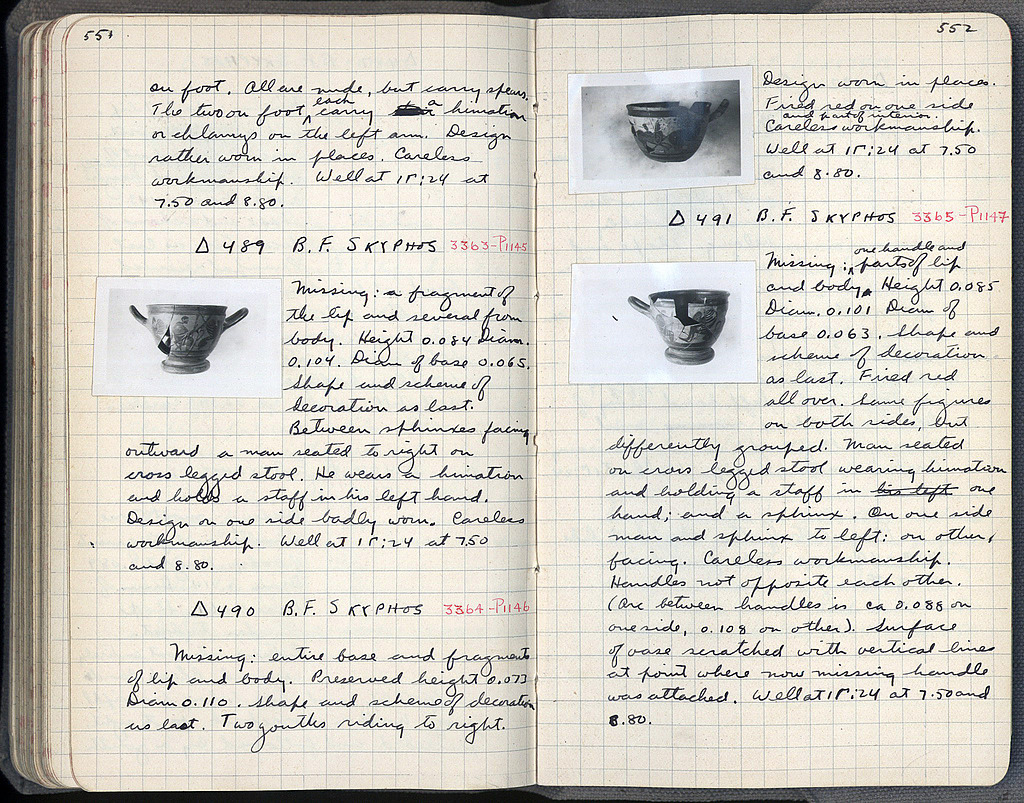 551
on foot. All are nude, but carry spears.
The two on foot, each carry a himation
or chlamys on the left arm. Design
rather worn in places. Careless
workmanship. Well at 15:24 at
7.50 and 8.80.
Δ 489 B. F. SKYPHOS 3363-P1145
Missing: a fragment of
the lip and several from
body. Height 0.084 Diam.
0.104. Diam of base 0.065.
Shape and scheme of
decoration as last.
Between sphinxes facing
outward a man seated to right on
cross legged stool. He wears a himation
and holds a staff in his left hand.
Design on one side badly worn. Careless
workmanship. Well at 15:24 at 7.50
and 8.80.
Δ 490 B. F. SKYPHOS 3364-P1146
Missing: entire base and fragments
of lip and body. Preserved height 0.073
Diam 0.110. Shape and scheme of decoration
as last. Two youths riding to right.
552
Design worn in places.
Fired red on one side
and part of interior.
Careless workmanship.
Well at 15:24 at 7.50
and 8.80.
Δ 491 B. F. SKYPHOS 3365-P1147
one handle and
Missing: parts of lip
and body. Height 0.085
Diam. 0.101 Diam of
base 0.063. Shape and
scheme of decoration
as last. Fired red
all over. Same figures
on both sides, but
differently grouped. Man seated
on cross legged stool wearing himation
and holding a staff in his left one
hand; and a sphinx. On one side
man and sphinx to left: on other,
facing. Careless workmanship.
Handles not opposite each other.
(Arc between handles is ca 0.088 on
one side, 0.108 on other). Surface
of vase scratched with vertical lines
at point where now missing handle
was attached. Well at 15:24 at 7.50 and
8.80.